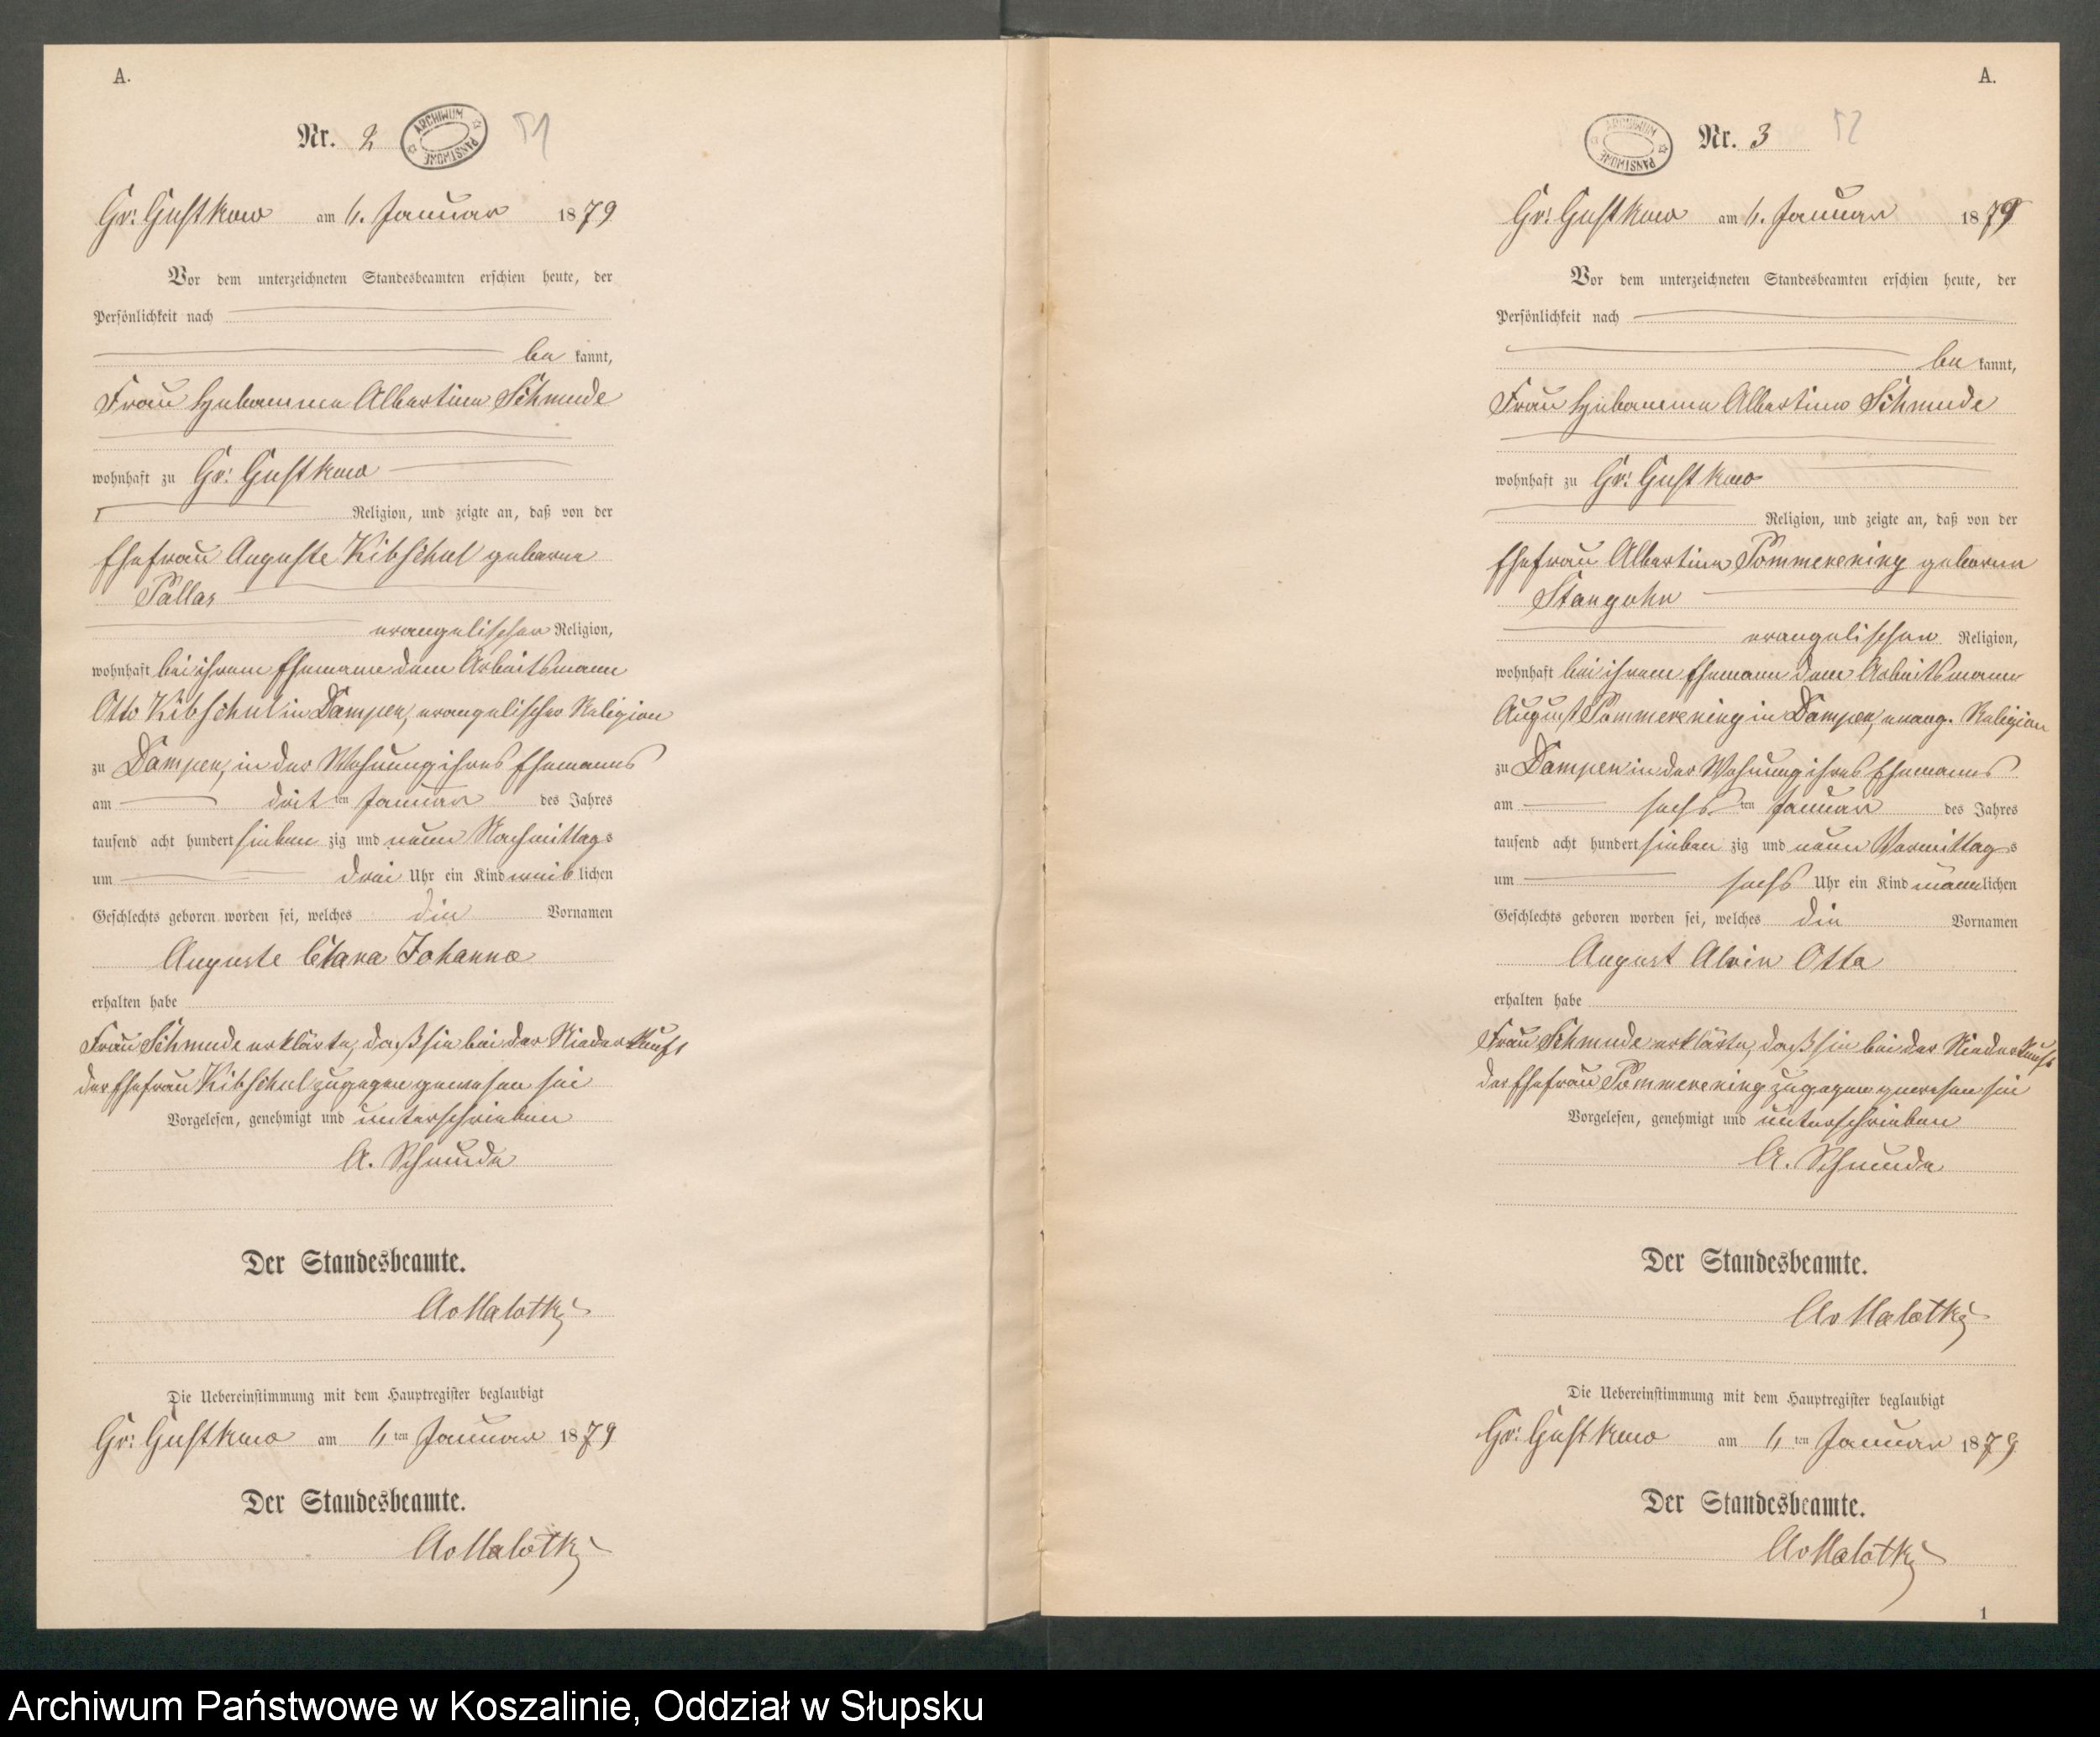 A.
Nr. 2
ARCHIWUM PAŃSTWOWE
51
Gr: Gustkow am 6. Januar 1879
Vor dem unterzeichneten Standesbeamten erschien heute, der
Persönlichkeit nach
be kannt,
Frau Hebamme Albertine Schmude
wohnhaft zu Gr: Gustkow
Religion, und zeigte an, daß von der
Ehefrau Auguste Kibschul geborne
Pallas
evangelischer Religion,
wohnhaft bei ihrem Ehemane dem Arbeitsmann
Otto Kibschul in Dampen, evangelischer Religion
zu Dampen, in der Wohnung ihres Ehemanns
am drit ten Januar des Jahres
tausend acht hundert sieben zig und neun Nachmittags
um drei Uhr ein Kind weiblichen
Geschlechts geboren worden sei, welches die Vornamen
Auguste Clara Johanna
erhalten habe
Frau Schmude erklärte, daß sie bei der Niederkunft
der Ehefrau Kibschul zugegen gewesen sei
Vorgelesen, genehmigt und unterschrieben
A. Schmude
Der Standesbeamte.
AvMalotki
Die Uebereinstimmung mit dem Hauptregister beglaubigt
Gr: Gustkow am 6 ten Januar 1879
Der Standesbeamte.
AvMalotki
A.
ARCHIWUM PAŃSTWOWE
Nr. 3
52
Gr: Gustkow am 6. Januar 1879
Vor dem unterzeichneten Standesbeamten erschien heute, der
Persönlichkeit nach
be kannt,
Frau Hebamme Albertine Schmude
wohnhaft zu Gr: Gustkow
Religion, und zeigte an, daß von der
Ehefrau Albertine Pommerening geborne
Stangohr
evangelischen Religion,
wohnhaft bei ihrem Ehemann dem Arbeitsmann
August Pommerening in Dampen, evang. Religion
zu Dampen in der Wohnung ihres Ehemanns
am sechs ten Januar des Jahres
tausend acht hundert sieben zig und neun Vormittags
um sechs Uhr ein Kind männlichen
Geschlechts geboren worden sei, welches die Vornamen
August Alvin Otto
erhalten habe
Frau Schmude erklärte, daß sie bei der Niederkunft
der Ehefrau Pommerening zugegen gewesen sei
Vorgelesen, genehmigt und unterschrieben
A. Schmude
Der Standesbeamte.
AvMalotki
Die Uebereinstimmung mit dem Hauptregister beglaubigt
Gr: Gustkow am 6 ten Januar 1879
Der Standesbeamte.
AvMalotki
1
Archiwum Państwowe w Koszalinie, Oddział w Słupsku